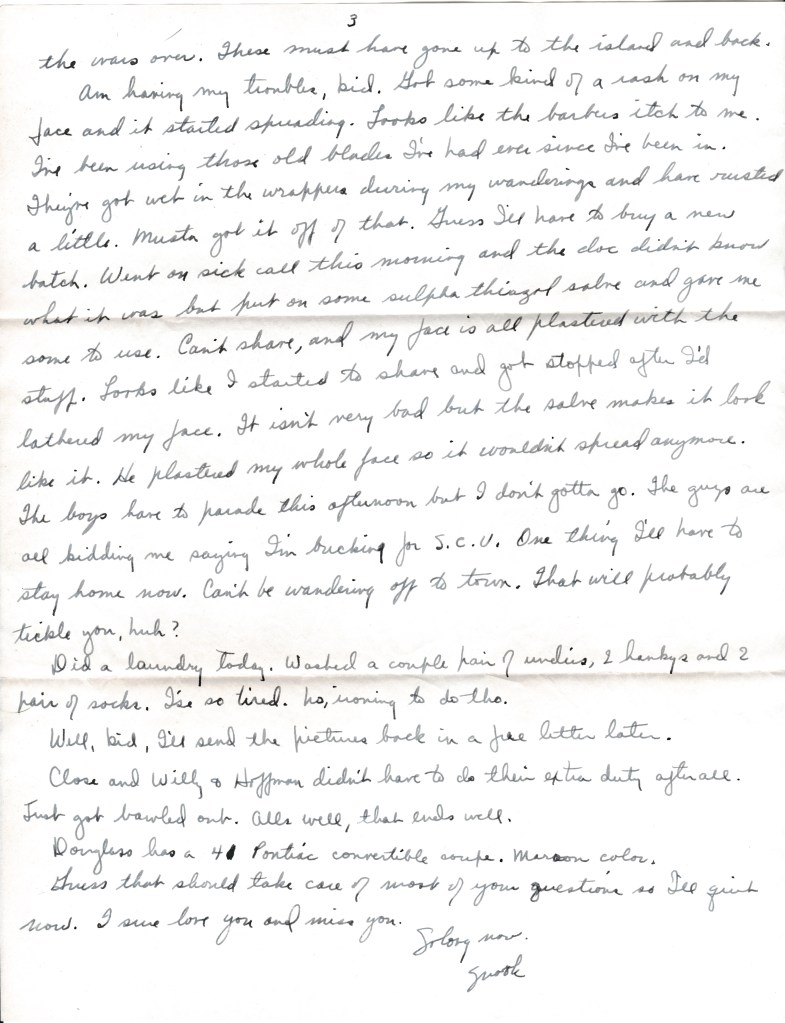 3
the wars over. These must have gone up to the island and back.
Am having my troubles, kid. Got some kind of a rash on my
face and it started spreading. Looks like the barbers itch to me.
I've been using those old blades I've had ever since I've been in.
They've got wet in the wrappers during my wanderings and have rusted
a little. Musta got it off of that. Guess I'll have to buy a new
batch. Went on sick call this morning and the doc didn't know
what it was but put on some sulpha thiazol salve and gave me
some to use. Can't shave, and my face is all plastered with the
stuff. Looks like I started to shave and got stopped after I'd
lathered my face. It isn't very bad but the salve makes it look
like it. He plastered my whole face so it wouldn't spread anymore.
The boys have to parade this afternoon but I don't gotta go. The guys are
all kidding me saying I'm bucking for S.C.U. One thing I'll have to
stay home now. Can't be wandering off to town. That will probably
tickle you, huh?
Did a laundry today. Washed a couple pair of undies, 2 hankys and 2
pair of socks. I'se so tired. No, ironing to do tho.
Well, kid, I'll send the pictures back in a free letter later.
Close and Willy & Hoffman didn't have to do their extra duty afterall.
Just got bawled out. Alls well, that ends well.
Douglass has a 41 Pontiac convertible coupe. Maroon color.
Guess that should take care of most of your questions so I'll quit
now. I sure love you and miss you.
Solong now.
Snook